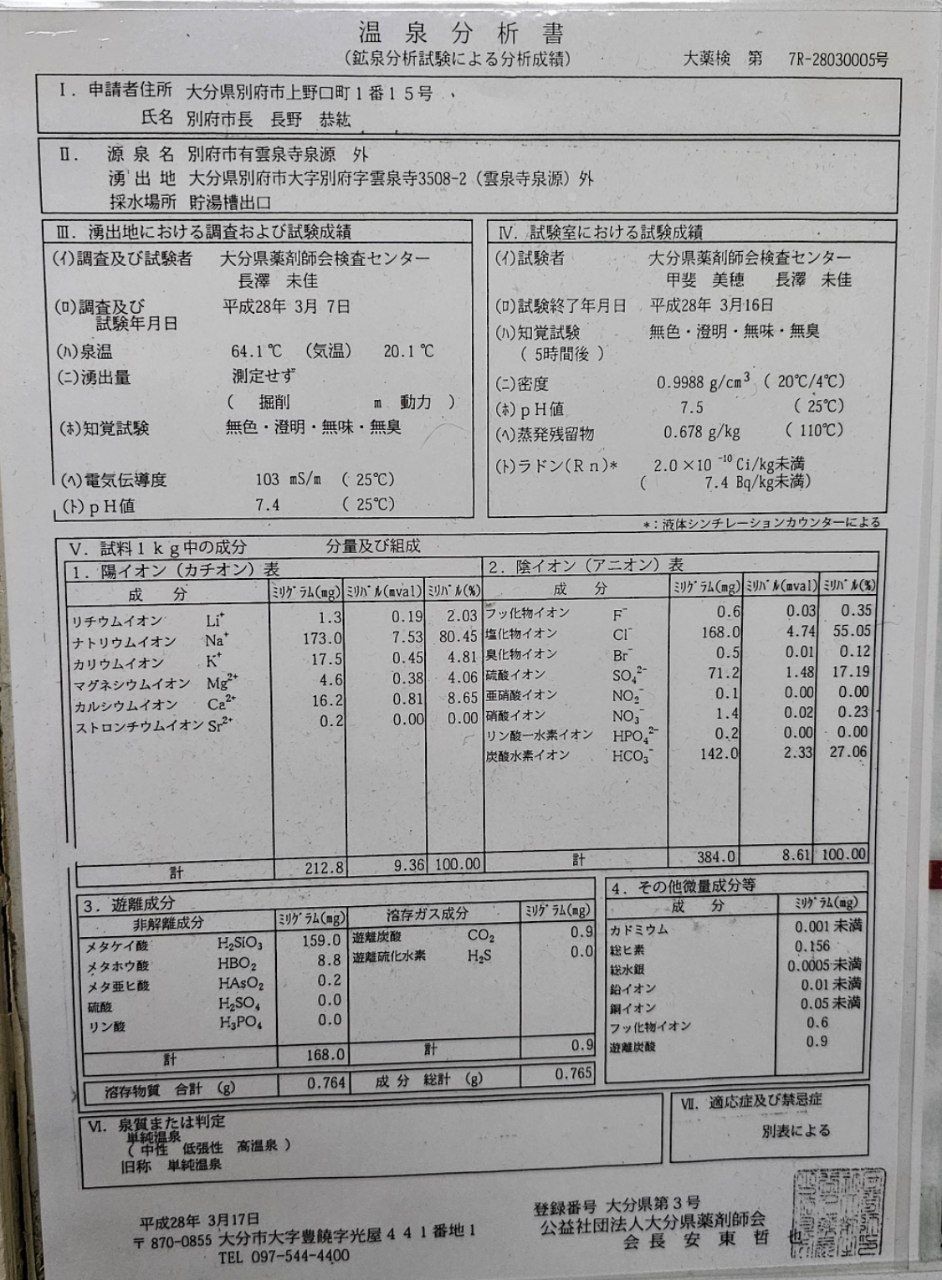 温泉分析書
(鉱泉分析試験による分析成績)
大薬検 第 7R-28030005号
Ⅰ. 申請者住所 大分県別府市上野口町1番15号
氏名 別府市長 長野 恭紘
Ⅱ. 源泉名 別府市有雲泉寺泉源 外
湧出地 大分県別府市大字別府字雲泉寺3508-2 (雲泉寺泉源) 外
採水場所 貯湯槽出口
Ⅲ. 湧出地における調査および試験成績
(イ)調査及び試験者 大分県薬剤師会検査センター
長澤 未佳
(ロ)調査及び
試験年月日 平成28年 3月 7日
(ハ)泉温 64.1℃ (気温) 20.1℃
(ニ)湧出量 測定せず
( 掘削 m 動力 )
(ホ)知覚試験 無色・澄明・無味・無臭
(ヘ)電気伝導度 103 mS/m (25℃)
(ト)pH値 7.4 (25℃)
Ⅳ. 試験室における試験成績
(イ)試験者 大分県薬剤師会検査センター
甲斐 美穂 長澤 未佳
(ロ)試験終了年月日 平成28年 3月16日
(ハ)知覚試験 無色・澄明・無味・無臭
( 5時間後 )
(ニ)密度 0.9988 g/cm³ ( 20℃/4℃)
(ホ)pH値 7.5 ( 25℃)
(ヘ)蒸発残留物 0.678 g/kg ( 110℃)
(ト)ラドン(Rn)* 2.0×10⁻¹⁰ Ci/kg未満
( 7.4 Bq/kg未満)
*:液体シンチレーションカウンターによる
Ⅴ. 試料1kg中の成分 分量及び組成
1. 陽イオン (カチオン) 表
成 分 ミリグラム(mg) ミリバル(mval) ミリバル(%)
リチウムイオン Li⁺ 1.3 0.19 2.03
ナトリウムイオン Na⁺ 173.0 7.53 80.45
カリウムイオン K⁺ 17.5 0.45 4.81
マグネシウムイオン Mg²⁺ 4.6 0.38 4.06
カルシウムイオン Ca²⁺ 16.2 0.81 8.65
ストロンチウムイオン Sr²⁺ 0.2 0.00 0.00
計 212.8 9.36 100.00
2. 陰イオン (アニオン) 表
成 分 ミリグラム(mg) ミリバル(mval) ミリバル(%)
フッ化物イオン F⁻ 0.6 0.03 0.35
塩化物イオン Cl⁻ 168.0 4.74 55.05
臭化物イオン Br⁻ 0.5 0.01 0.12
硫酸イオン SO₄²⁻ 71.2 1.48 17.19
亜硝酸イオン NO₂⁻ 0.1 0.00 0.00
硝酸イオン NO₃⁻ 1.4 0.02 0.23
リン酸一水素イオン HPO₄²⁻ 0.2 0.00 0.00
炭酸水素イオン HCO₃⁻ 142.0 2.33 27.06
計 384.0 8.61 100.00
3. 遊離成分
非解離成分 ミリグラム(mg)
メタケイ酸 H₂SiO₃ 159.0
メタホウ酸 HBO₂ 8.8
メタ亜ヒ酸 HAsO₂ 0.2
硫酸 H₂SO₄ 0.0
リン酸 H₃PO₄ 0.0
計 168.0
溶存ガス成分 ミリグラム(mg)
遊離炭酸 CO₂ 0.9
遊離硫化水素 H₂S 0.0
計 0.9
溶存物質 合計 (g) 0.764 成分 総計 (g) 0.765
4. その他微量成分等
成 分 ミリグラム(mg)
カドミウム 0.001 未満
総ヒ素 0.156
総水銀 0.0005 未満
鉛イオン 0.01 未満
銅イオン 0.05 未満
フッ化物イオン 0.6
遊離炭酸 0.9
Ⅵ. 泉質または判定
単純温泉
( 中性 低張性 高温泉 )
旧称 単純温泉
Ⅶ. 適応症及び禁忌症
別表による
平成28年 3月17日
〒870-0855 大分市大字豊饒字光屋441番地1
TEL 097-544-4400
登録番号 大分県第3号
公益社団法人大分県薬剤師会
会長 安東哲也